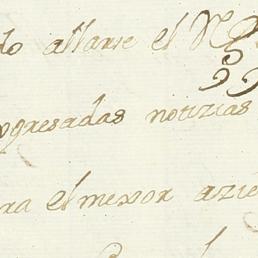 do allarse el
ogresadas notizias
ra el mexor azie